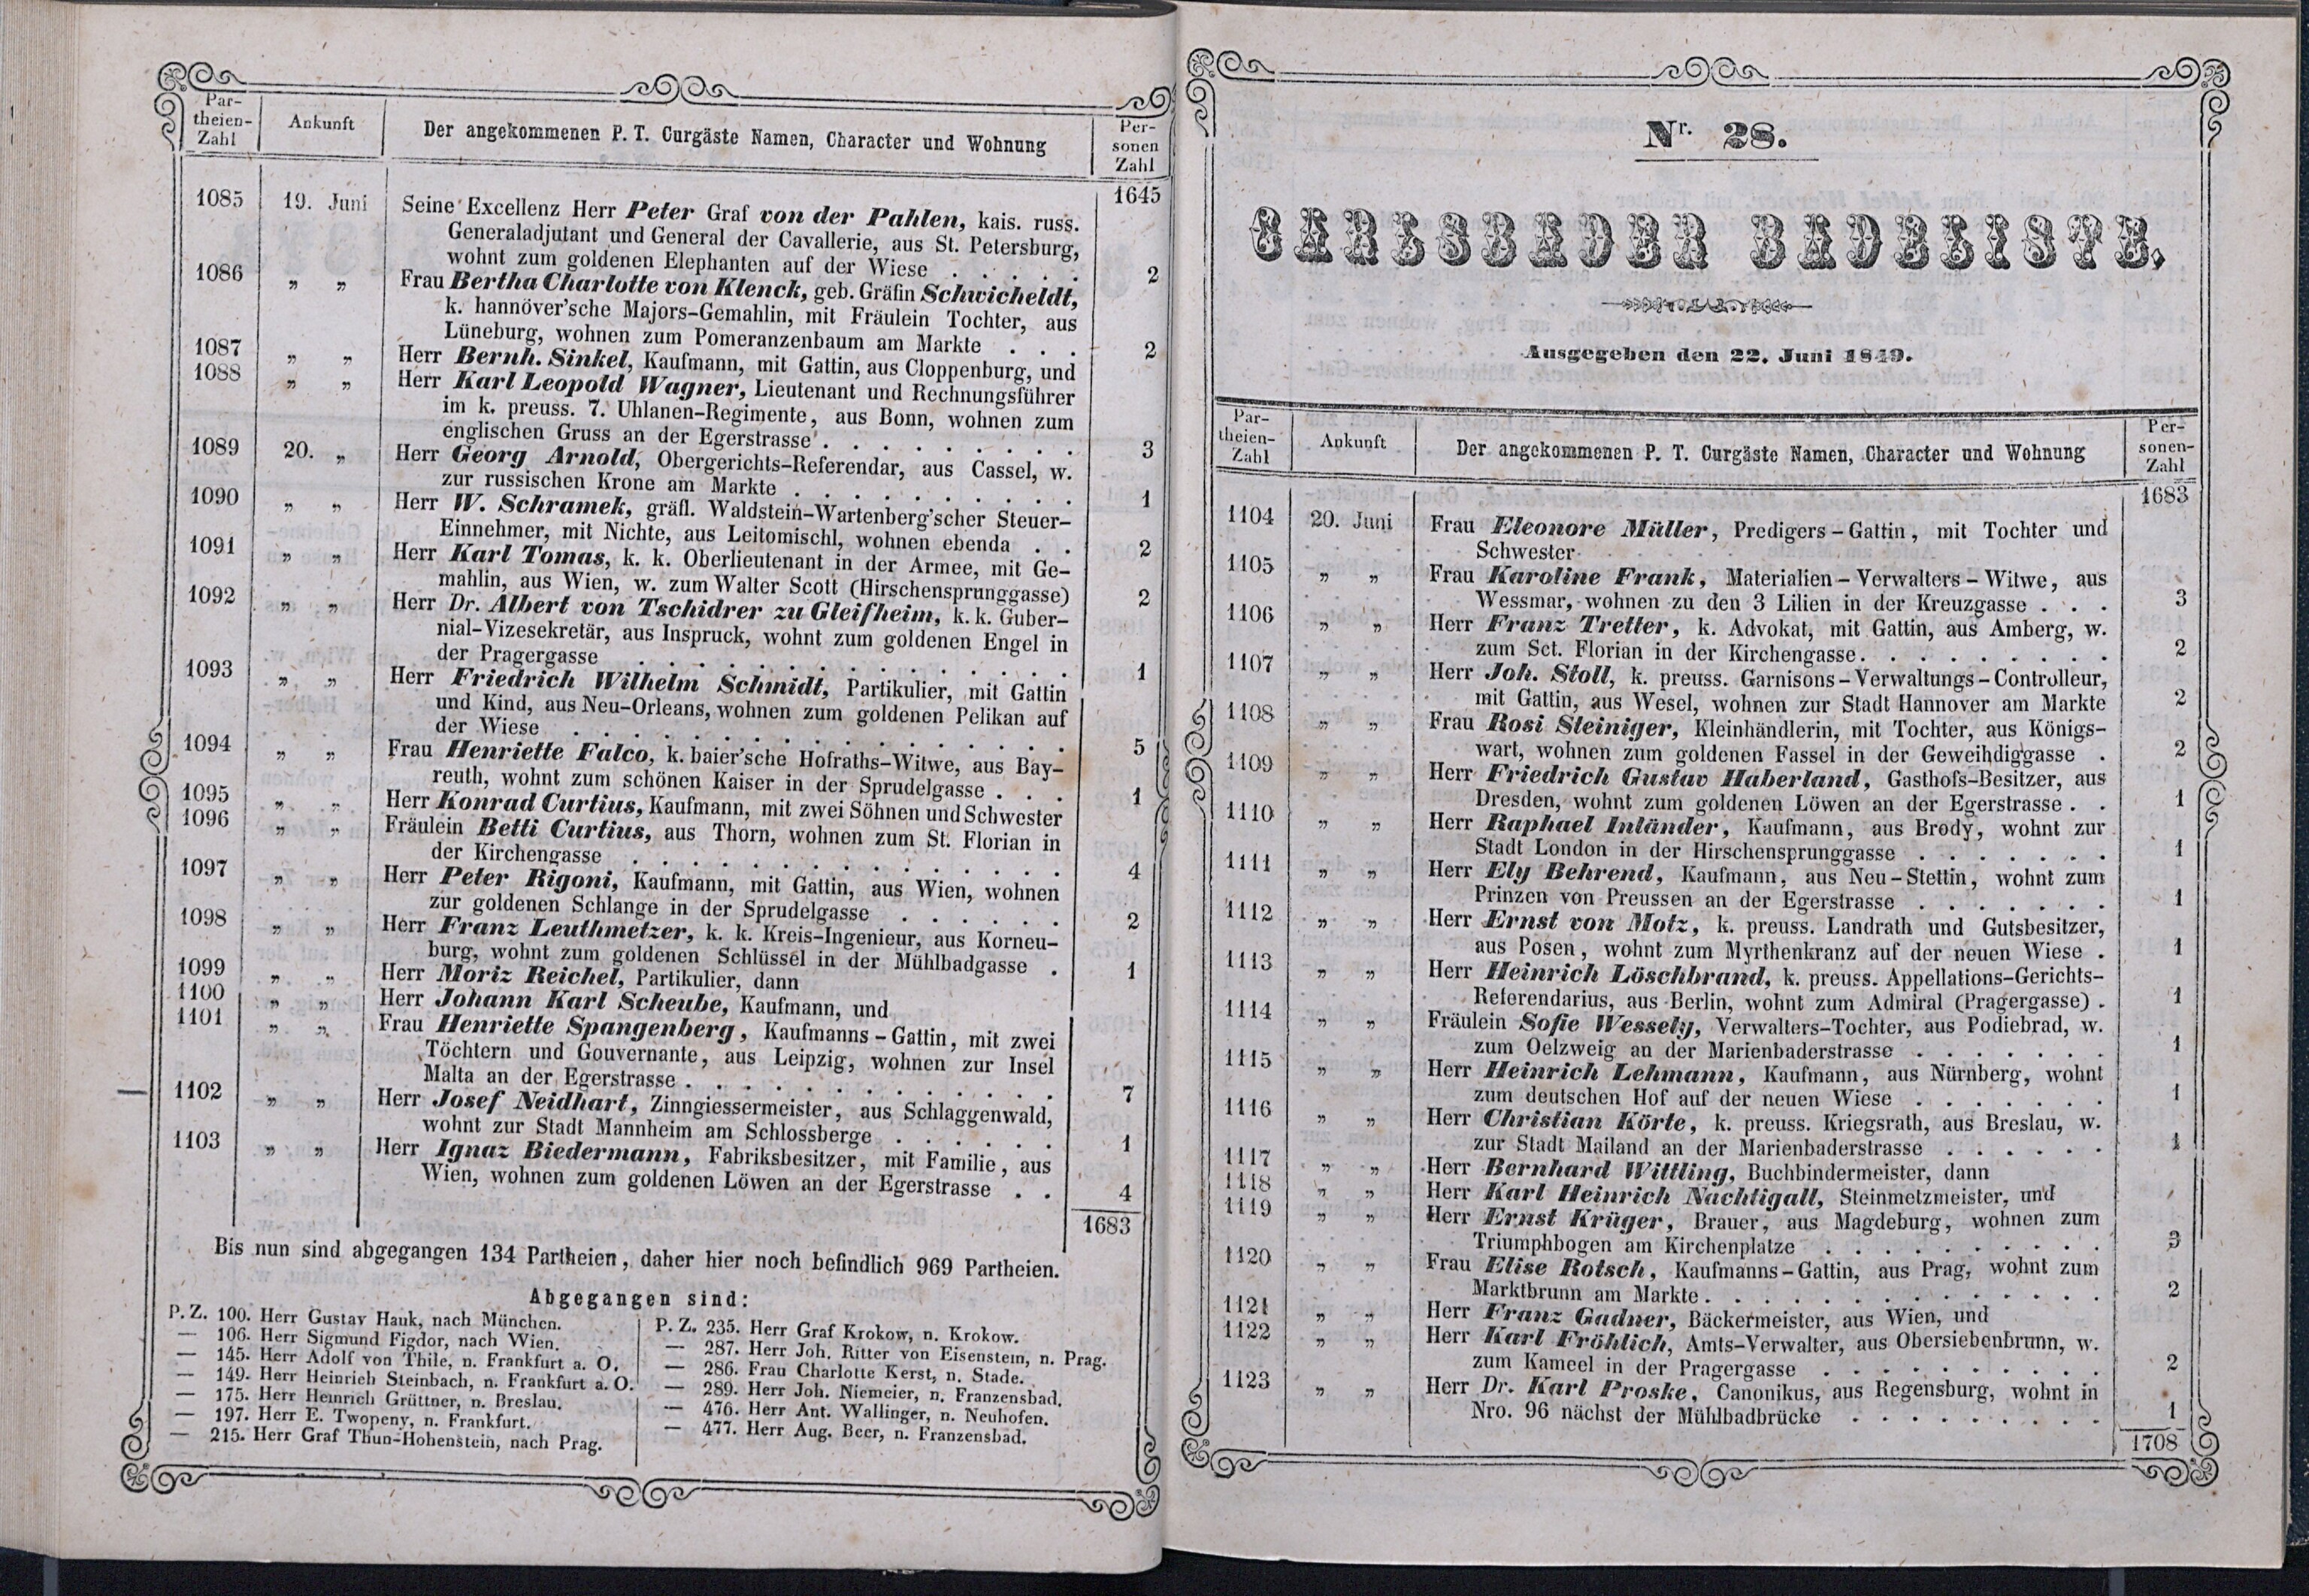 Par-
theien-
Zahl
Ankunft
Der angekommenen P. T. Curgäste Namen, Character und Wohnung
Per-
sonen
Zahl
1645
1085 19. Juni Seine Excellenz Herr Peter Graf von der Pahlen, kais. russ.
Generaladjutant und General der Cavallerie, aus St. Petersburg,
wohnt zum goldenen Elephanten auf der Wiese . . . . . 2
1086 „ „ Frau Bertha Charlotte von Klenck, geb. Gräfin Schwicheldt,
k. hannöver'sche Majors-Gemahlin, mit Fräulein Tochter, aus
Lüneburg, wohnen zum Pomeranzenbaum am Markte . . . 2
1087 „ „ Herr Bernh. Sinkel, Kaufmann, mit Gattin, aus Cloppenburg, und
1088 „ „ Herr Karl Leopold Wagner, Lieutenant und Rechnungsführer
im k. preuss. 7. Uhlanen-Regimente, aus Bonn, wohnen zum
englischen Gruss an der Egerstrasse . . . . . . . . . 3
1089 20. „ Herr Georg Arnold, Obergerichts-Referendar, aus Cassel, w.
zur russischen Krone am Markte . . . . . . . . . . 1
1090 „ „ Herr W. Schramek, gräfl. Waldstein-Wartenberg'scher Steuer-
Einnehmer, mit Nichte, aus Leitomischl, wohnen ebenda . . 2
1091 „ „ Herr Karl Tomas, k. k. Oberlieutenant in der Armee, mit Ge-
mahlin, aus Wien, w. zum Walter Scott (Hirschensprunggasse) 2
1092 „ „ Herr Dr. Albert von Tschidrer zu Gleifheim, k. k. Guber-
nial-Vizesekretär, aus Inspruck, wohnt zum goldenen Engel in
der Pragergasse . . . . . . . . . . . . . . . 1
1093 „ „ Herr Friedrich Wilhelm Schmidt, Partikulier, mit Gattin
und Kind, aus Neu-Orleans, wohnen zum goldenen Pelikan auf
der Wiese . . . . . . . . . . . . . . . . . 5
1094 „ „ Frau Henriette Falco, k. baier'sche Hofraths-Witwe, aus Bay-
reuth, wohnt zum schönen Kaiser in der Sprudelgasse . . . 1
1095 „ „ Herr Konrad Curtius, Kaufmann, mit zwei Söhnen und Schwester
1096 „ „ Fräulein Betti Curtius, aus Thorn, wohnen zum St. Florian in
der Kirchengasse . . . . . . . . . . . . . . 4
1097 „ „ Herr Peter Rigoni, Kaufmann, mit Gattin, aus Wien, wohnen
zur goldenen Schlange in der Sprudelgasse . . . . . . 2
1098 „ „ Herr Franz Leuthmetzer, k. k. Kreis-Ingenieur, aus Korneu-
burg, wohnt zum goldenen Schlüssel in der Mühlbadgasse . 1
1099 „ „ Herr Moriz Reichel, Partikulier, dann
1100 „ „ Herr Johann Karl Scheube, Kaufmann, und
1101 „ „ Frau Henriette Spangenberg, Kaufmanns-Gattin, mit zwei
Töchtern und Gouvernante, aus Leipzig, wohnen zur Insel
Malta an der Egerstrasse . . . . . . . . . . . . 7
1102 „ „ Herr Josef Neidhart, Zinngiessermeister, aus Schlaggenwald,
wohnt zur Stadt Mannheim am Schlossberge . . . . . . 1
1103 „ „ Herr Ignaz Biedermann, Fabriksbesitzer, mit Familie, aus
Wien, wohnen zum goldenen Löwen an der Egerstrasse . . 4
1683
Bis nun sind abgegangen 134 Partheien, daher hier noch befindlich 969 Partheien.
Abgegangen sind:
P. Z. 100. Herr Gustav Hauk, nach München.
— 106. Herr Sigmund Figdor, nach Wien.
— 145. Herr Adolf von Thile, n. Frankfurt a. O.
— 149. Herr Heinrich Steinbach, n. Frankfurt a. O.
— 175. Herr Heinrich Grüttner, n. Breslau.
— 197. Herr E. Twopeny, n. Frankfurt.
— 215. Herr Graf Thun-Hohenstein, nach Prag.
P. Z. 235. Herr Graf Krokow, n. Krokow.
— 287. Herr Joh. Ritter von Eisenstein, n. Prag.
— 286. Frau Charlotte Kerst, n. Stade.
— 289. Herr Joh. Niemeier, n. Franzensbad.
— 476. Herr Ant. Wallinger, n. Neuhofen.
— 477. Herr Aug. Beer, n. Franzensbad.
Nr. 28.
CARLSBADER BADELISTE.
Ausgegeben den 22. Juni 1849.
Par-
theien-
Zahl
Ankunft
Der angekommenen P. T. Curgäste Namen, Character und Wohnung
Per-
sonen-
Zahl
1683
1104 20. Juni Frau Eleonore Müller, Predigers-Gattin, mit Tochter und
Schwester
1105 „ „ Frau Karoline Frank, Materialien-Verwalters-Witwe, aus
Wessmar, wohnen zu den 3 Lilien in der Kreuzgasse . . . 3
1106 „ „ Herr Franz Tretter, k. Advokat, mit Gattin, aus Amberg, w.
zum Sct. Florian in der Kirchengasse. . . . . . . . . 2
1107 „ „ Herr Joh. Stoll, k. preuss. Garnisons-Verwaltungs-Controlleur,
mit Gattin, aus Wesel, wohnen zur Stadt Hannover am Markte 2
1108 „ „ Frau Rosi Steiniger, Kleinhändlerin, mit Tochter, aus Königs-
wart, wohnen zum goldenen Fassel in der Geweihdiggasse . 2
1109 „ „ Herr Friedrich Gustav Haberland, Gasthofs-Besitzer, aus
Dresden, wohnt zum goldenen Löwen an der Egerstrasse . . 1
1110 „ „ Herr Raphael Inländer, Kaufmann, aus Brody, wohnt zur
Stadt London in der Hirschensprunggasse . . . . . . . 1
1111 „ „ Herr Ely Behrend, Kaufmann, aus Neu-Stettin, wohnt zum
Prinzen von Preussen an der Egerstrasse . . . . . . . 1
1112 „ „ Herr Ernst von Motz, k. preuss. Landrath und Gutsbesitzer,
aus Posen, wohnt zum Myrthenkranz auf der neuen Wiese . 1
1113 „ „ Herr Heinrich Löschbrand, k. preuss. Appellations-Gerichts-
Referendarius, aus Berlin, wohnt zum Admiral (Pragergasse) . 1
1114 „ „ Fräulein Sofie Wessely, Verwalters-Tochter, aus Podiebrad, w.
zum Oelzweig an der Marienbaderstrasse . . . . . . . 1
1115 „ „ Herr Heinrich Lehmann, Kaufmann, aus Nürnberg, wohnt
zum deutschen Hof auf der neuen Wiese . . . . . . . 1
1116 „ „ Herr Christian Körte, k. preuss. Kriegsrath, aus Breslau, w.
zur Stadt Mailand an der Marienbaderstrasse . . . . . . 1
1117 „ „ Herr Bernhard Wittling, Buchbindermeister, dann
1118 „ „ Herr Karl Heinrich Nachtigall, Steinmetzmeister, und
1119 „ „ Herr Ernst Krüger, Brauer, aus Magdeburg, wohnen zum
Triumphbogen am Kirchenplatze . . . . . . . . . . 3
1120 „ „ Frau Elise Rotsch, Kaufmanns-Gattin, aus Prag, wohnt zum
Marktbrunn am Markte . . . . . . . . . . . . . . 2
1121 „ „ Herr Franz Gadner, Bäckermeister, aus Wien, und
1122 „ „ Herr Karl Fröhlich, Amts-Verwalter, aus Obersiebenbrunn, w.
zum Kameel in der Pragergasse . . . . . . . . . . 2
1123 „ „ Herr Dr. Karl Proske, Canonikus, aus Regensburg, wohnt in
Nro. 96 nächst der Mühlbadbrücke . . . . . . . . . 1
1708